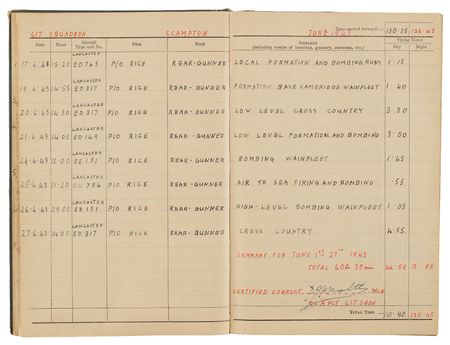 617 SQUADRON SCAMPTON JUNE 1943 Time carried forward:— 130·35 126·45
Date Hour Aircraft Type and No. Pilot Duty REMARKS (including results of bombing, gunnery, exercises, etc.) Flying Times Day Night
17·6·43 15·20 LANCASTER ED763 P/O RICE REAR-GUNNER LOCAL FORMATION AND BOMBING RUNS 1·15
19·6·43 14·55 LANCASTER ED317 P/O RICE REAR-GUNNER FORMATION BASE CAMBRIDGE WAINFLEET 1·40
20·6·43 14·30 LANCASTER ED317 P/O RICE REAR-GUNNER LOW LEVEL CROSS COUNTRY
21·6·43 14·05 LANCASTER P/O RICE REAR-GUNNER LOW LEVEL FORMATION AND BOMBING 3·00
24·6·43 11·00 LANCASTER P/O RICE REAR-GUNNER BOMBING WAINFLEET 1·45
25·6·43 11·20 LANCASTER P/O RICE REAR-GUNNER AIR TO SEA FIRING AND BOMBING ·55
26·6·43 09·00 LANCASTER P/O RICE REAR-GUNNER HIGH-LEVEL BOMBING WAINFLEET 1·05
27·6·43 14·00 LANCASTER ED317 P/O RICE REAR-GUNNER CROSS COUNTRY 4·55
SUMMARY FOR JUNE 1ST 27TH 1943
TOTAL 60h 30min
CERTIFIED CORRECT
617 SQDN
TOTAL TIME 40 126·45